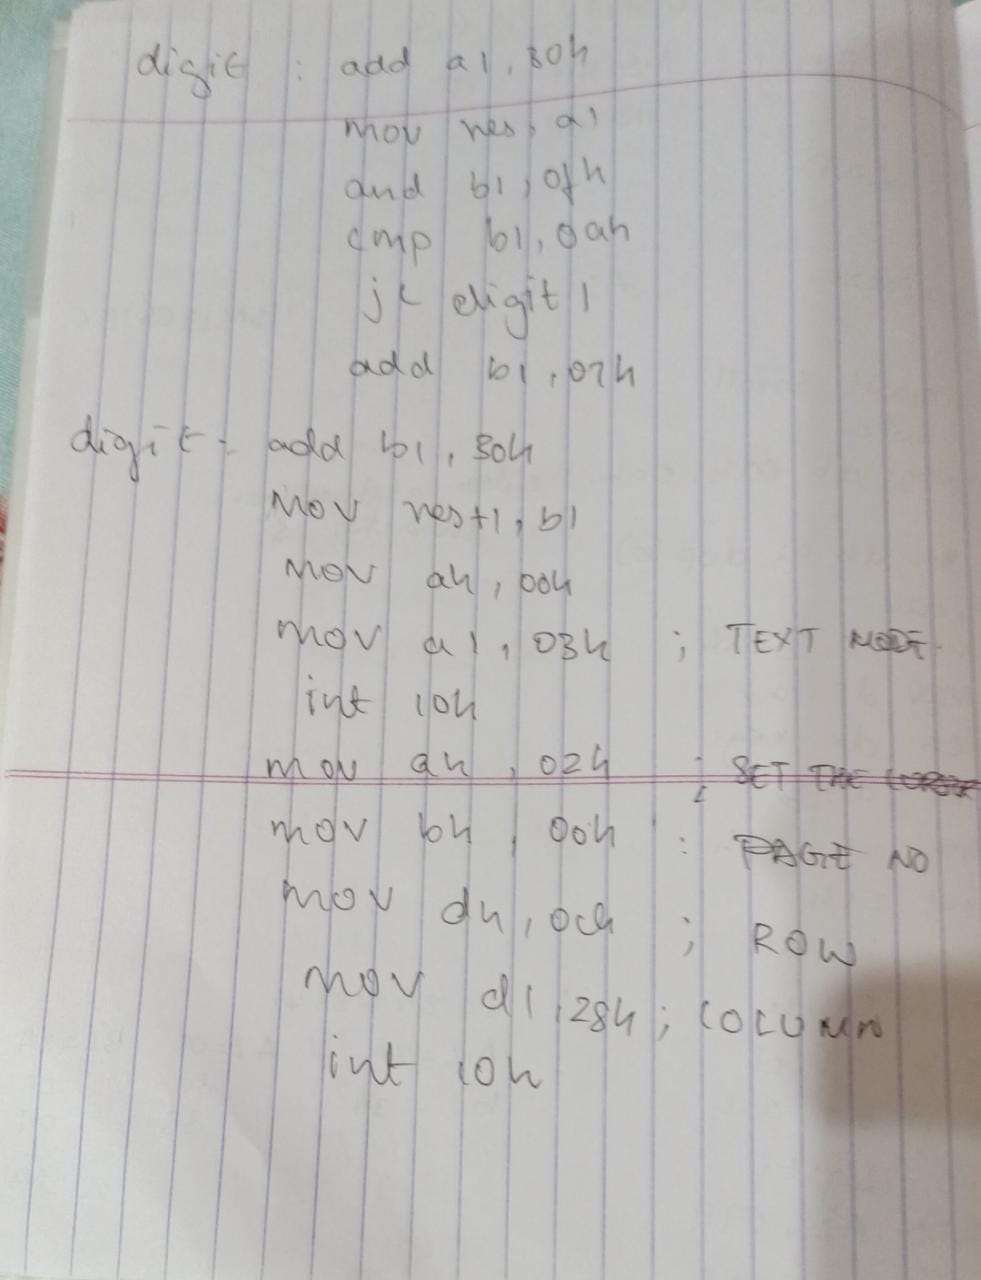 digit : add al, 30h
mov res, al
and bl, 0fh
cmp bl, 0ah
jc digit1
add bl, 07h
digit : add bl, 30h
mov res+1, bl
mov ah, 00h
mov al, 03h ; TEXT MODE
int 10h
mov ah, 02h ; SET THE
mov bh, 00h : PAGE NO
mov dh, 0ch ; ROW
mov dl, 28h ; COLUMN
int 10h